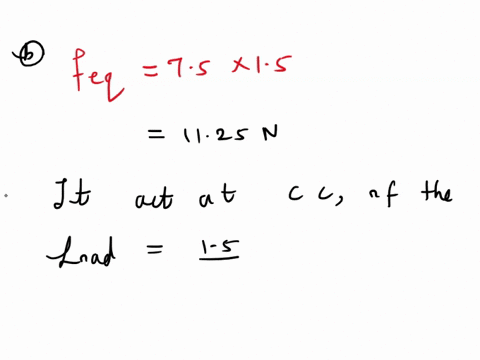 (b) Feq = 7.5 × 1.5
= 11.25 N
It act at c c, of the
Load = 1.5